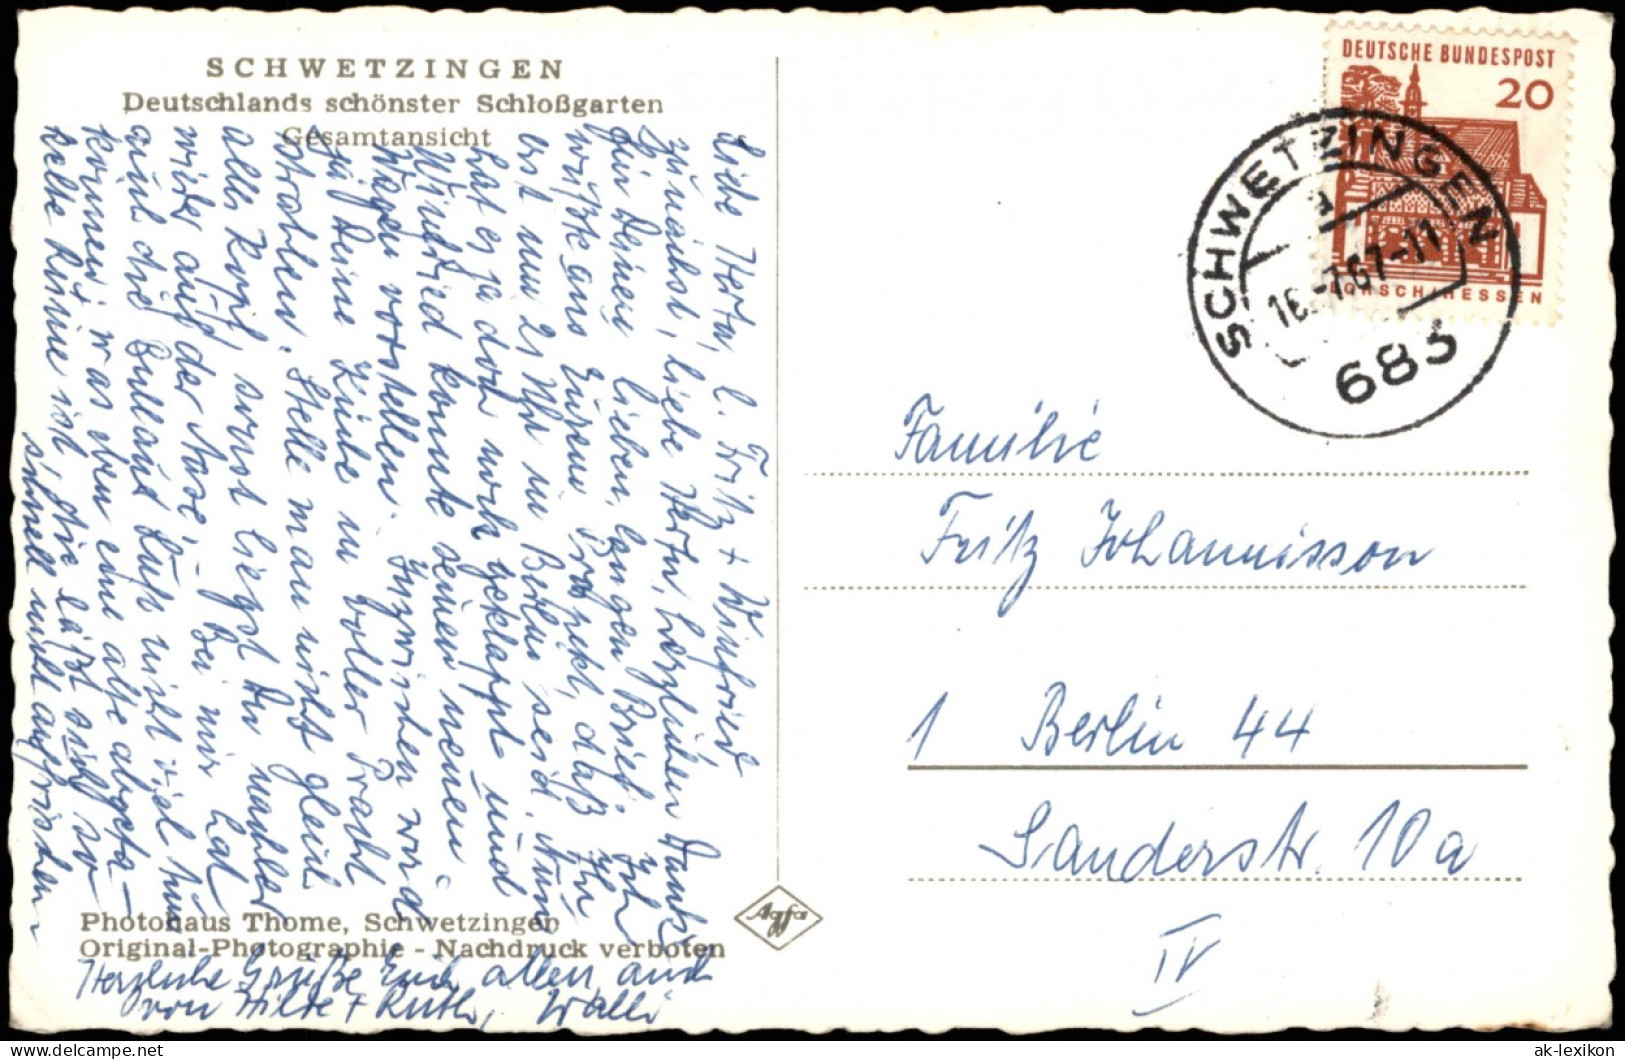 SCHWETZINGEN
Deutschlands schönster Schloßgarten
Gesamtansicht
Liebe Herta, l. Fritz + Winfried
Zunächst, liebe Herta, herzlichen Dank
für Deinen lieben, langen Brief. Ich
wußte aus Eurem Prospekt, daß Ihr
erst um 21 Uhr in Berlin seid. Nun
hat es ja doch noch geklappt und
Winfried konnte seinen neuen
Wagen vorstellen. Inzwischen wird
ja Deine Bude in voller Pracht
strahlen. Stelle man nicht gleich
alles Kopf, sonst liegst Du nachher
wieder auf der Nase. – Bei mir hat
auch die Luft nicht viel tun
können, was eben eine alte abgeta-
kelte Ruine ist, die läßt sich so
schnell nicht auffrischen
Photohaus Thome, Schwetzingen
Original-Photographie - Nachdruck verboten
Herzliche Grüße Euch allen auch
von Hilde + Ruth, Walli
Agfa
DEUTSCHE BUNDESPOST
20
LORSCH/HESSEN
SCHWETZINGEN
a
16.-7.67-11
683
Familie
Fritz Johannisson
1 Berlin 44
Sanderstr. 10a
IV
ak-lexikon